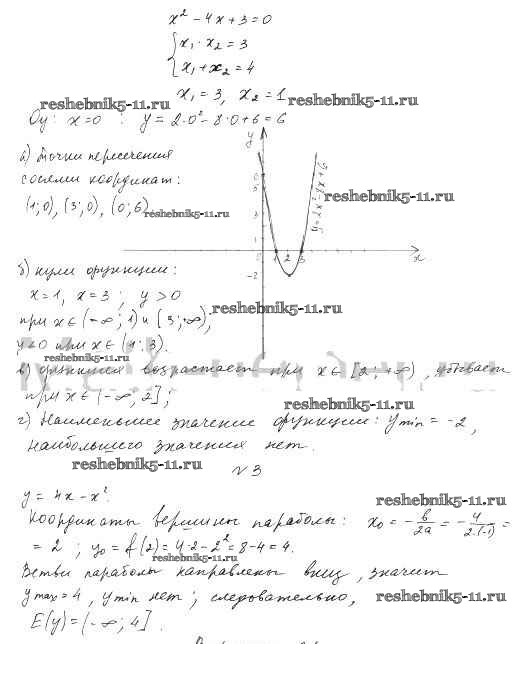 x² - 4x + 3 = 0
{ x₁ · x₂ = 3
{ x₁ + x₂ = 4
x₁ = 3, x₂ = 1
reshebnik5-11.ru reshebnik5-11.ru
Oy: x=0 : y = 2·0² - 8·0 + 6 = 6
а) точки пересечения
с осями координат:
(1; 0), (3; 0), (0; 6)
reshebnik5-11.ru
reshebnik5-11.ru
y
6
5
3
1
-2
1 2 3
x
y=2x²-8x+6
б) нули функции:
x=1, x=3; y>0
reshebnik5-11.ru
при x∈(-∞; 1) и [3; +∞);
y<0 при x∈(1; 3).
reshebnik5-11.ru
в) функция возрастает при x∈[2; +∞), убывает
при x∈(-∞; 2];
reshebnik5-11.ru
г) Наименьшее значение функции: y min = -2,
наибольшего значения нет.
reshebnik5-11.ru
№3
y = 4x - x².
reshebnik5-11.ru
Координаты вершины параболы: x₀ = -в/2a = -4/2·(-1) =
= 2; y₀ = f(2) = 4·2 - 2² = 8 - 4 = 4.
Ветви параболы направлены вниз, значит
y max = 4, y min нет; следовательно,
reshebnik5-11.ru
E(y) = (-∞; 4].